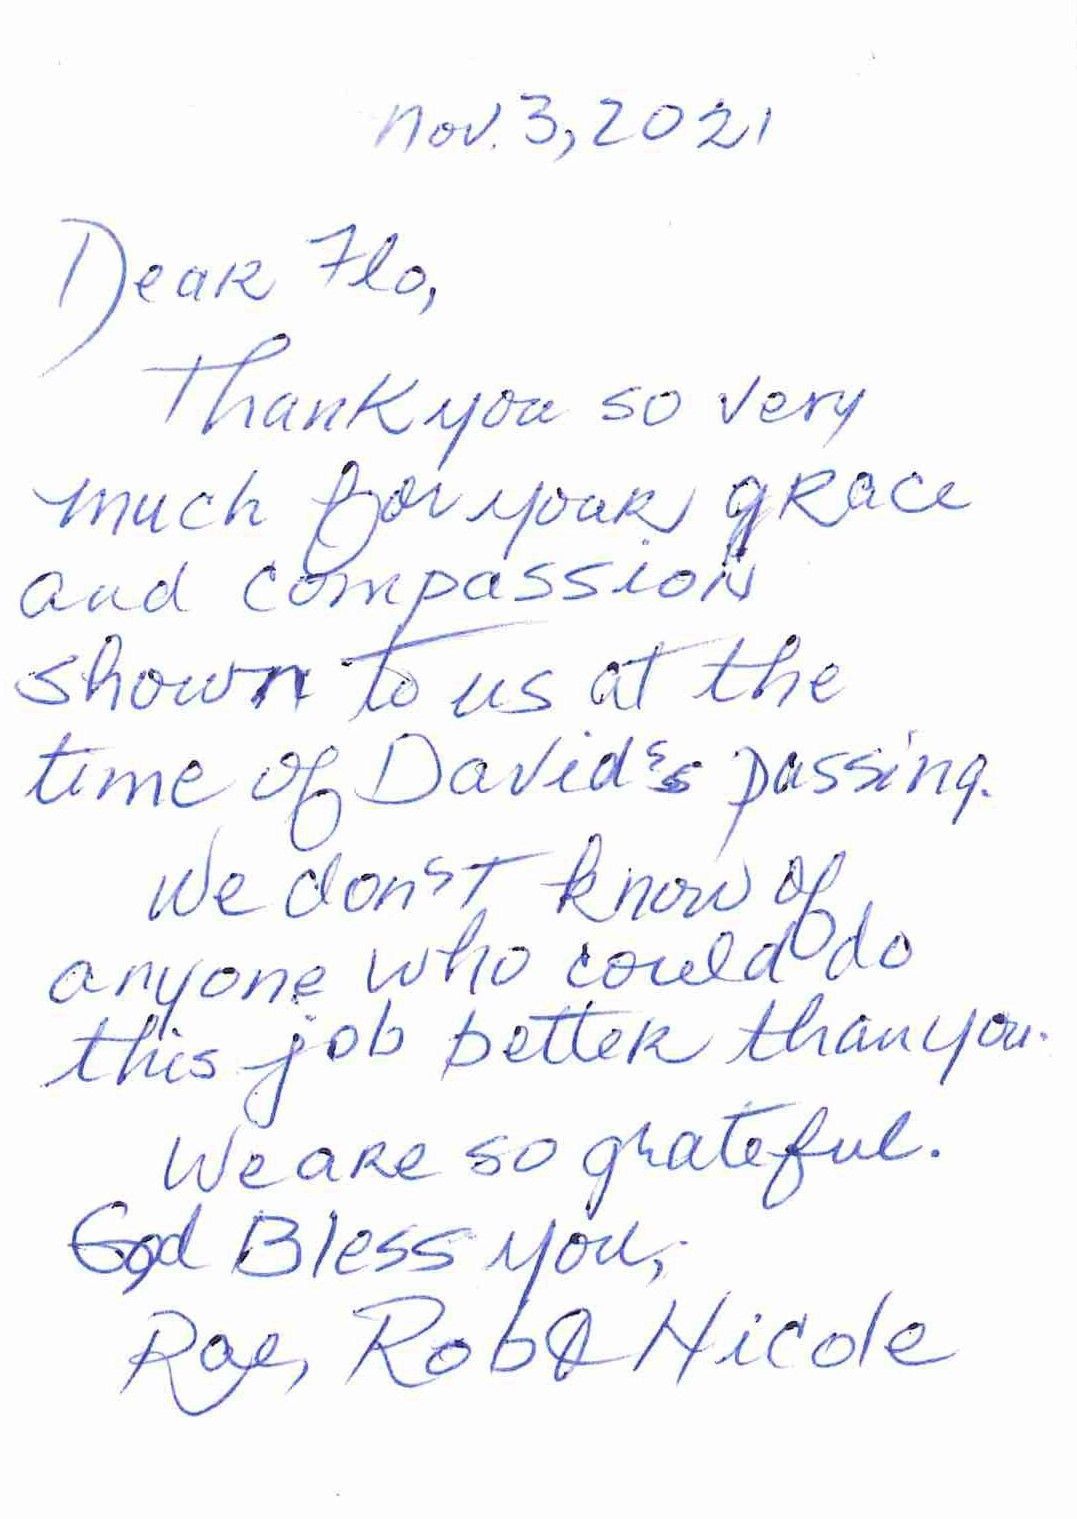 Nov. 3, 2021
Dear Flo,
Thank you so very
much for your grace
and compassion
shown to us at the
time of David's passing.
We don't know of
anyone who could do
this job better than you.
We are so grateful.
God Bless you,
Rae, Rob & Nicole